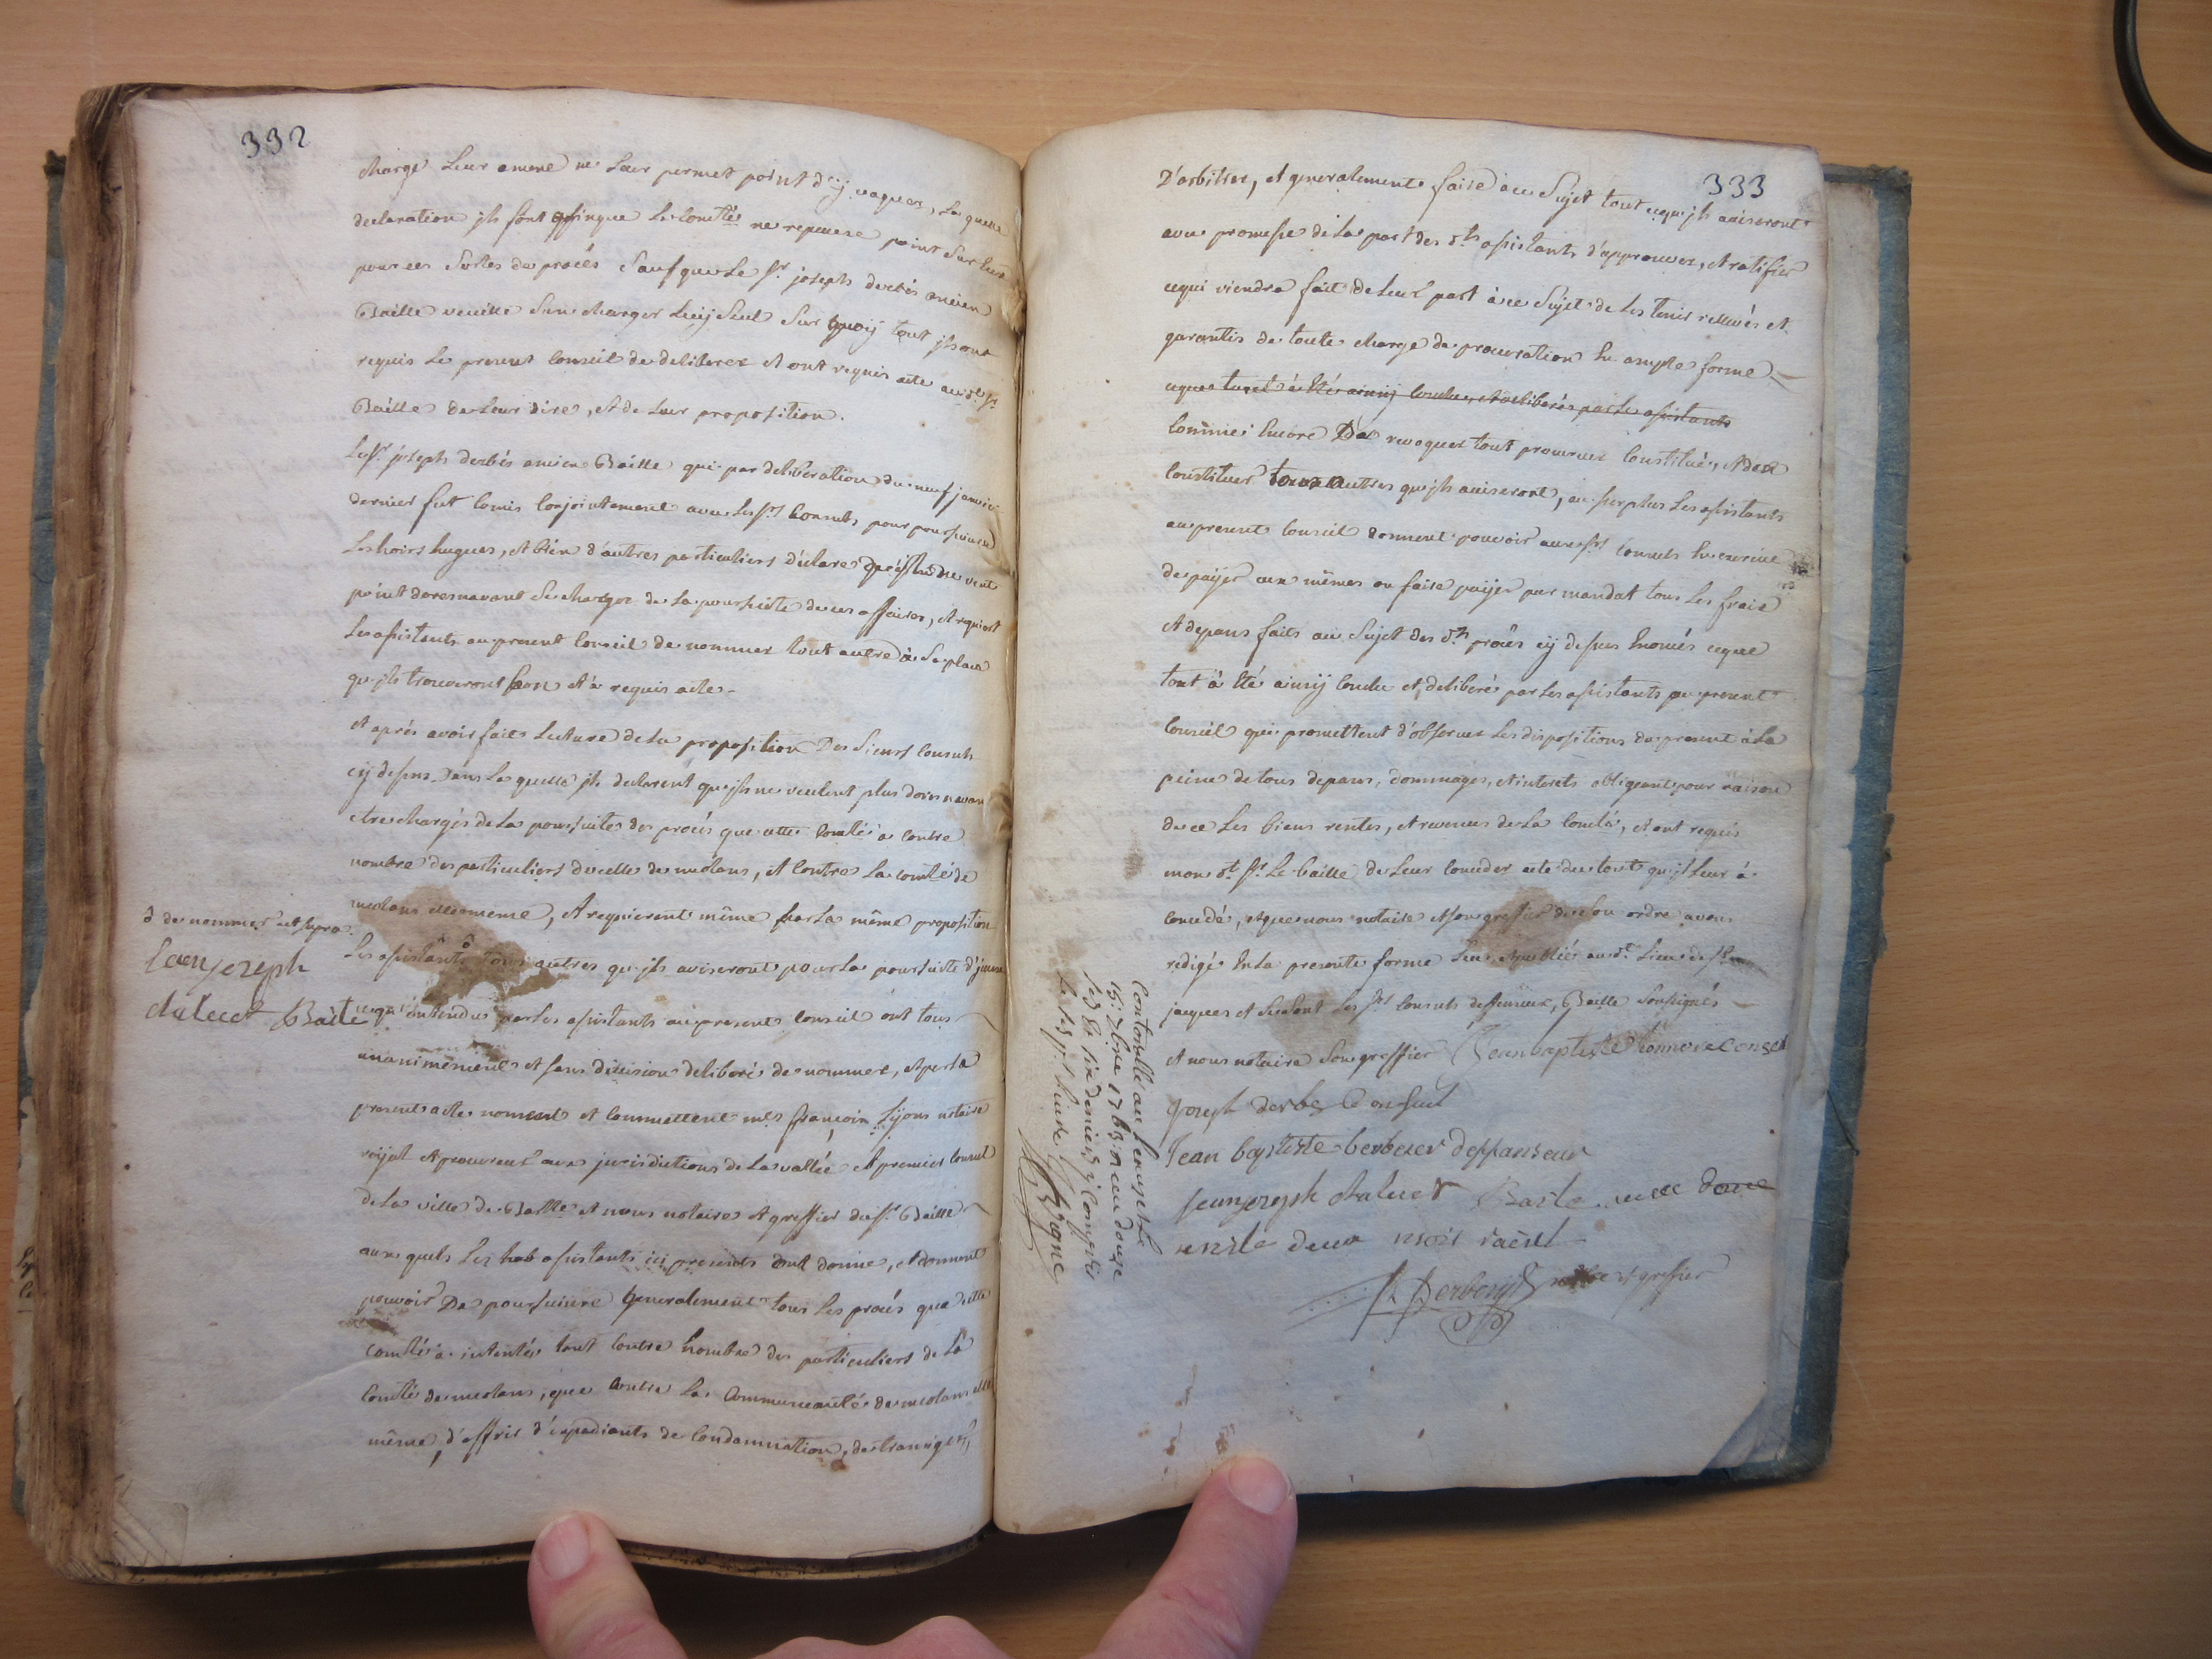 332
charge leur amené ne leur permet point d'y vaquer, la quelle
declaration jls font affinque la Comté ne repause point sur Eux
pour ces sortes de procés sauf que le Sr joseph derbés ancien
Baille veuille s'en charger luÿ seul sur quoÿ tout jls ont
requis le present Conseil de deliberer et ont requis acte au dt Sr
Baille de leur dire, et de leur proposition.
Le Sr joseph derbés ancien Baille qui par deliberation du neuf janvier
dernier fut Comis Conjointement avec les Srs Consuls pour poursuivre
les hoirs hugues, et bien d'autres particuliers déclare qu'il ne veut
point doresnavant se charger de la poursuite de ces affaires, et requiert
les assistants au present Conseil de nommer tout autre à sa place
qu'jls trouveront bon et à requis acte -
et aprés avoir fait lecture de la proposition Des Sieurs Consuls
cÿ dessus Dans la quelle jls declarent qu'jls ne veulent plus doresnavant
etre chargés de la poursuite des procés que cette Comté à contre
nombre des particuliers de celle de meolans, et contre la comté de
meolans elle meme, et requierent même par la même proposition
les assistants tous autres qu'jls aviseront pour la poursuite d'jceux
ce qu'entendu par les assistants au present Conseil ont tous
unanimement et sans division deliberé de nommer, et par le
present acte nomment et Commettent me francois Lÿons notaire
roÿal et procureur aux jurisdictions de la vallée et premier Consul
de la ville de Barlle et nous notaire et greffier du Sr Baille
aux quels les assistants ici presents ont donné, et donnent
pouvoir De poursuivre generalement tous les procés que cette
Comté à intentés tant contre nombre des particuliers de la
Comté de meolans, que contre la Communauté de meolans elle
même, d'offrir d'expediants de Condamnation, de transiger,
d de nommer
jean joseph
chaluet Baile
333
D'arbitrer, et generalement faire au Sujet tout ce qu'jls aviseront
avec promesse de la part des dts assistants d'approuver, et ratifier
ce qui viendra fait de leur part à ce Sujet de les tenir rellevés et
garantis de toute charge de procuration En ample forme
ce que tout à été ainsÿ Conclu et deliberé par les assistants
Comme Encore De revoquer tout procureur Constitué, et d'en
Constituer tous autres qu'jls aviseront, au surplus les assistants
au present Conseil donnent pouvoir aux Srs Consuls En exercice
de paÿer eux mêmes ou faire paÿer par mandat tous les frais
et depans faits au Sujet des dts procés cÿ dessus Enoncés ce que
tout à été ainsÿ Conclu et deliberé par les assistants au present
Conseil qui promettent d'observer les dispositions du present à la
peine de tous depans, dommages, et interets obligeant pour raison
de ce les biens rentes, et revenus de la Comté, et ont requis
mon dt Sr le baille de leur Conceder acte de tout qu'jl leur à
Concedé, et que nous notaire et son greffier de son ordre avons
redigé En la presente forme leu et publié au dt lieu de St
jacques et se sont les Srs Consuls deffenseur, Baille Soussignés
et nous notaire son greffier Jean baptiste Consel
Joseph derbes Consul
Jean baptiste berbeier deffanseur
jean joseph chaluet Baile
Derbesÿ notre et greffier
Controullé au
15: 7bre 1763